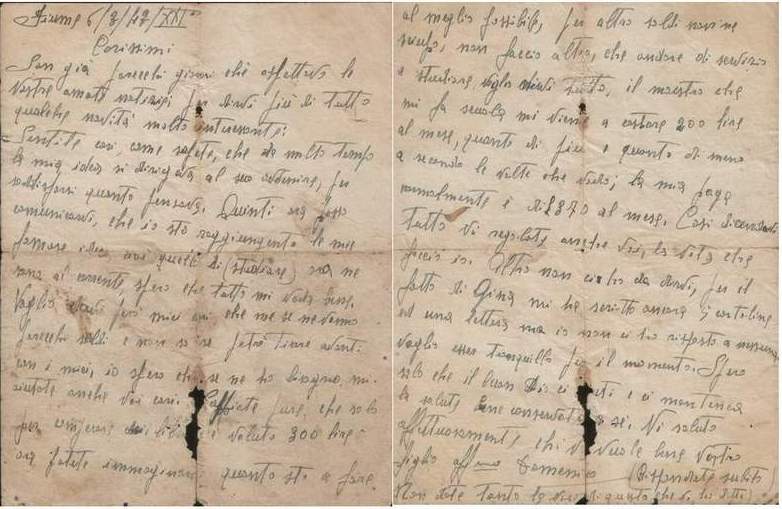 Fiume 6/3/42/XX°
Carissimi
Son già parecchi giorni ché aspettavo le
Vostre amate notizie, per dirvi più di tutto
qualche novità molto interessante:
Sentite cari, come sapete, che da molto tempo
la mia idea si dirigeva al suo avvenire, per
soddisfarvi quanto pensavo. Quindi ora posso
comunicarvi, che io stò raggiungento le mie
famose idee cioè quelle di (studiare) ora ne
sono al corrente spero che tutto mi vada bene.
Voglio dirvi però miei cari che me se ne vanno
parecchi soldi e non so se potrò tirare avanti
con i miei, io spero che se ne ho bisogno, mi
aiutate anche voi cari. Sappiate pure, che solo
per comprare dei libri è voluto 300 lire
ora potete immaginarvi quanto stò a fare
al meglio possibile, per altro soldi non ne
sciupo, non faccio altro, che andare di servizio
e studiare, voglio dirvi tutto, il maestro che
mi fa scuola mi viene a costare 200 lire
al mese, quanto di più e quanto di meno
a secondo le volte che vado; la mia paga
normalmente è di £870 al mese. Così
tutto vi regolate anche voi, la vita che
faccio io. Altro non ciò da dirvi, per il
fatto di Gina mi ha scritto ancora 5 cartoline
ed una lettera ma io non ci ho risposto a nessuna
voglio esser tranquillo per il momento. Spero
solo che il buon Dio ci aiuti e ci mantenga
la salute bene conservata a sé. Vi saluto
affettuosamente chi vi vuole bene Vostro
figlio aff.mo Domenico (Rispondete subito
Non dite tanto la vicenti questo che vi ho detto)